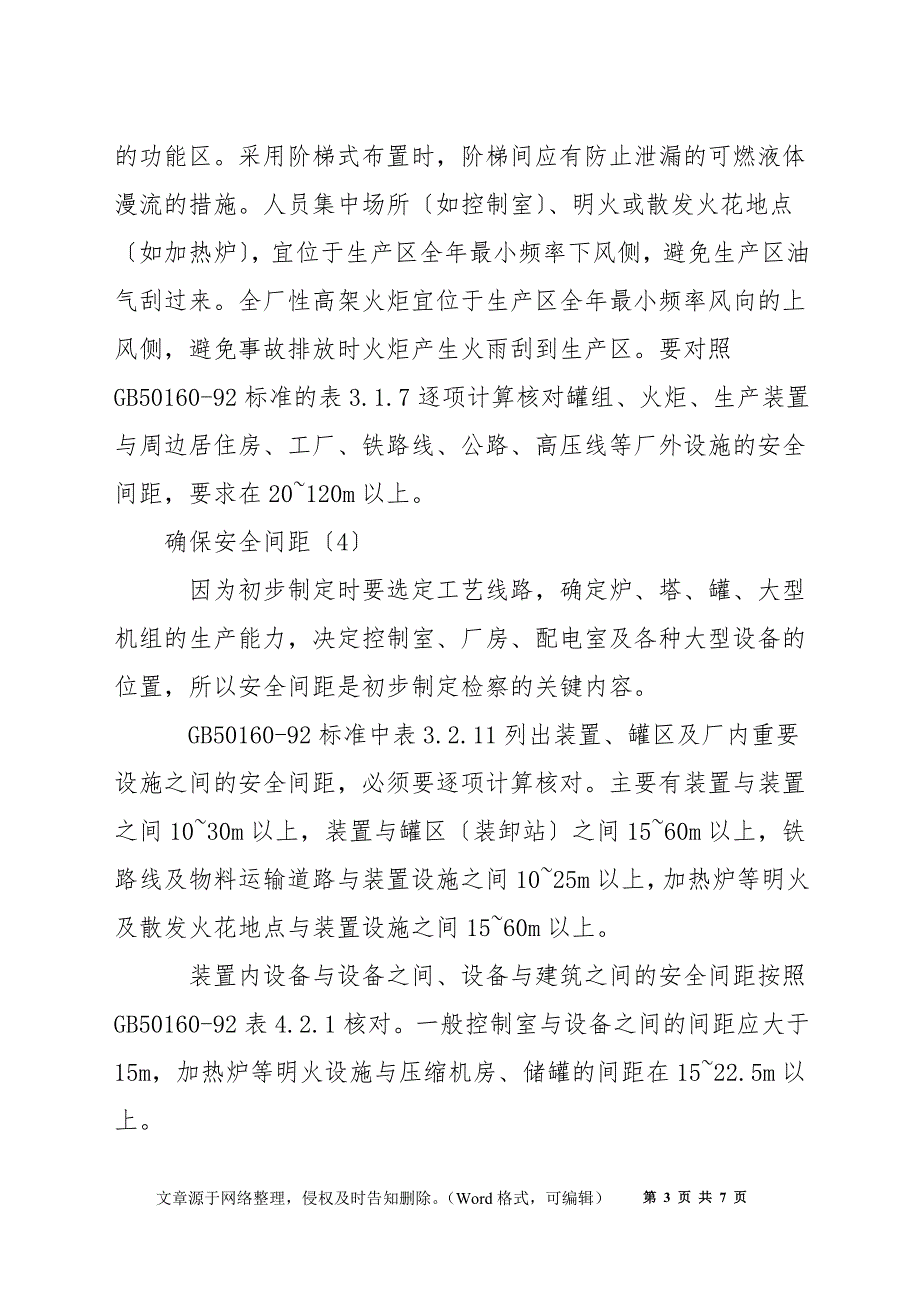 的功能区。采用阶梯式布置时，阶梯间应有防止泄漏的可燃液体
漫流的措施。人员集中场所〔如控制室〕、明火或散发火花地点
〔如加热炉〕，宜位于生产区全年最小频率下风侧，避免生产区油
气刮过来。全厂性高架火炬宜位于生产区全年最小频率风向的上
风侧，避免事故排放时火炬产生火雨刮到生产区。要对照
GB50160-92 标准的表 3.1.7 逐项计算核对罐组、火炬、生产装置
与周边居住房、工厂、铁路线、公路、高压线等厂外设施的安全
间距，要求在 20~120m 以上。
确保安全间距〔4〕
因为初步制定时要选定工艺线路，确定炉、塔、罐、大型
机组的生产能力，决定控制室、厂房、配电室及各种大型设备的
位置，所以安全间距是初步制定检察的关键内容。
GB50160-92 标准中表 3.2.11 列出装置、罐区及厂内重要
设施之间的安全间距，必须要逐项计算核对。主要有装置与装置
之间 10~30m 以上，装置与罐区〔装卸站〕之间 15~60m 以上，铁
路线及物料运输道路与装置设施之间 10~25m 以上，加热炉等明火
及散发火花地点与装置设施之间 15~60m 以上。
装置内设备与设备之间、设备与建筑之间的安全间距按照
GB50160-92 表 4.2.1 核对。一般控制室与设备之间的间距应大于
15m，加热炉等明火设施与压缩机房、储罐的间距在 15~22.5m 以
上。
文章源于网络整理，侵权及时告知删除。（Word 格式，可编辑） 第 3 页 共 7 页